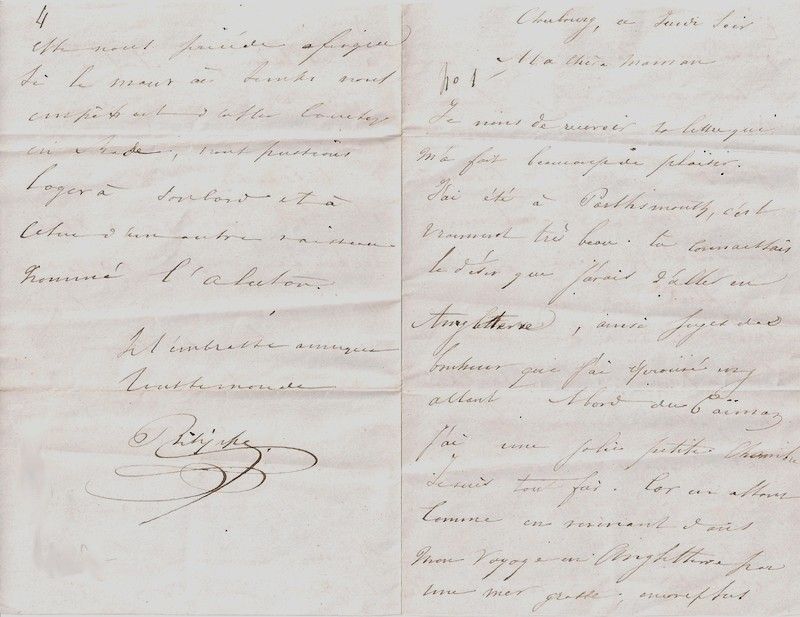 4
elle nous
Si le nous
d'aller
en rade, nous puissions
loger à son bord et à
celui d'un autre vaisseau
nommé
Je t'embrasse
tout le monde
Philippe
Cherbourg, ce Jeudi Soir
no 1
Ma chère Maman
Je viens de recevoir ta lettre qui
m'a fait beaucoup de plaisir.
J'ai été à Porthsmouth, c'est
vraiment très beau. tu connaissais
le désir que j'avais d'aller en
Angletterre, ainsi juges du
bonheur que j'ai éprouvé en y
allant. Abord du Caïman
j'ai une jolie petite chambre
Je suis tout fier. Car en allant
comme en revenant dans
mon voyage en Angletterre par
une mer grosse,